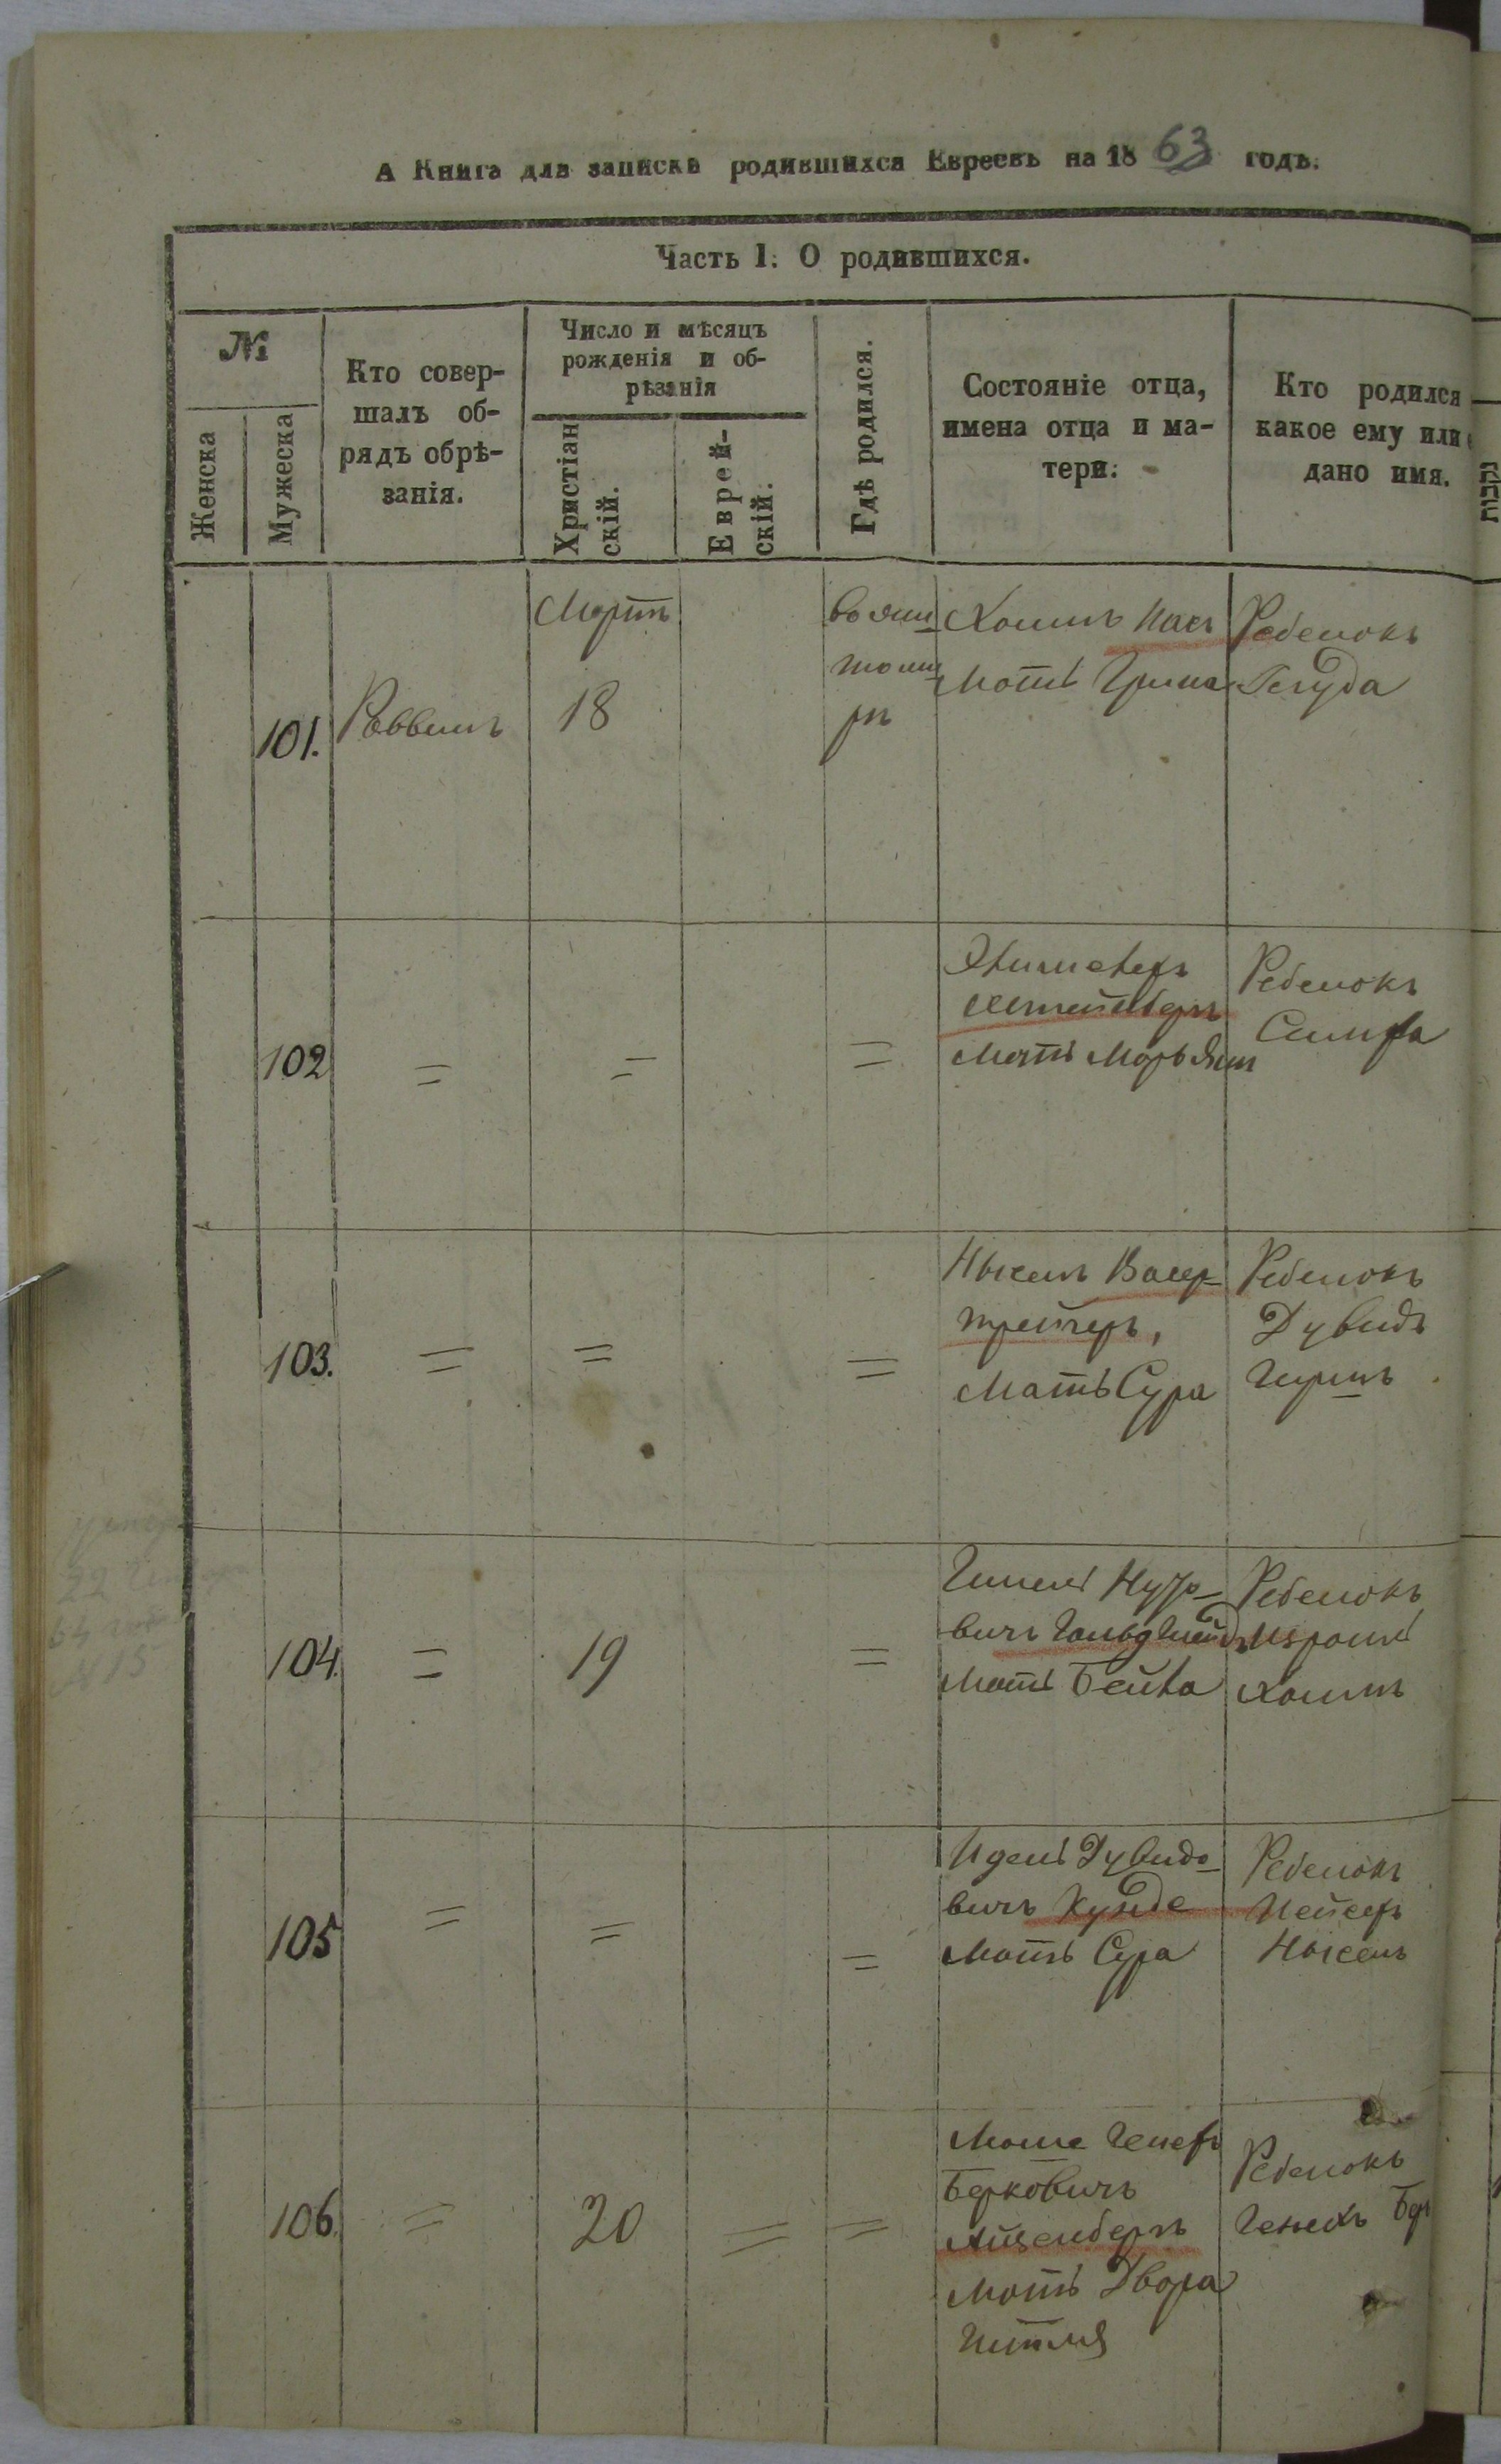 А Книга для записки родившихся Евреевъ на 1863 годъ.
Часть I. О родившихся.
№
Женска
Мужеска
Кто совер-
шалъ об-
рядъ обрѣ-
занія.
Число и мѣсяцъ
рожденія и об-
рѣзанія
Христіан
скій.
Еврей-
скій.
Гдѣ родился.
Состояніе отца,
имена отца и ма-
тери.
Кто родился
какое ему или
дано имя.
נקבות
101.
Раввинъ
Мартъ
18
во жит
томи
рѣ
Хаимъ
Мать
Ребенокъ
Гегуда
102
=
=
=
Штейнберъ
Мать Марьям
Ребенокъ
Симха
103.
=
=
=
Нысенъ Васер-
трегеръ,
Мать Сура
Ребенокъ
Дувидъ
Гиршъ
104.
=
19
=
вичъ
Мать Бейла
Ребенокъ
Израиль
Хаимъ
105
=
=
=
Идель Дувидо-
вичъ Кунде
Мать Сура
Ребенокъ
Иосеф
Нысенъ
106.
=
20
=
=
Моше Генех
Берковичъ
Айзенбергъ
Мать Двора
Гитля
Ребенокъ
Генехъ Бер